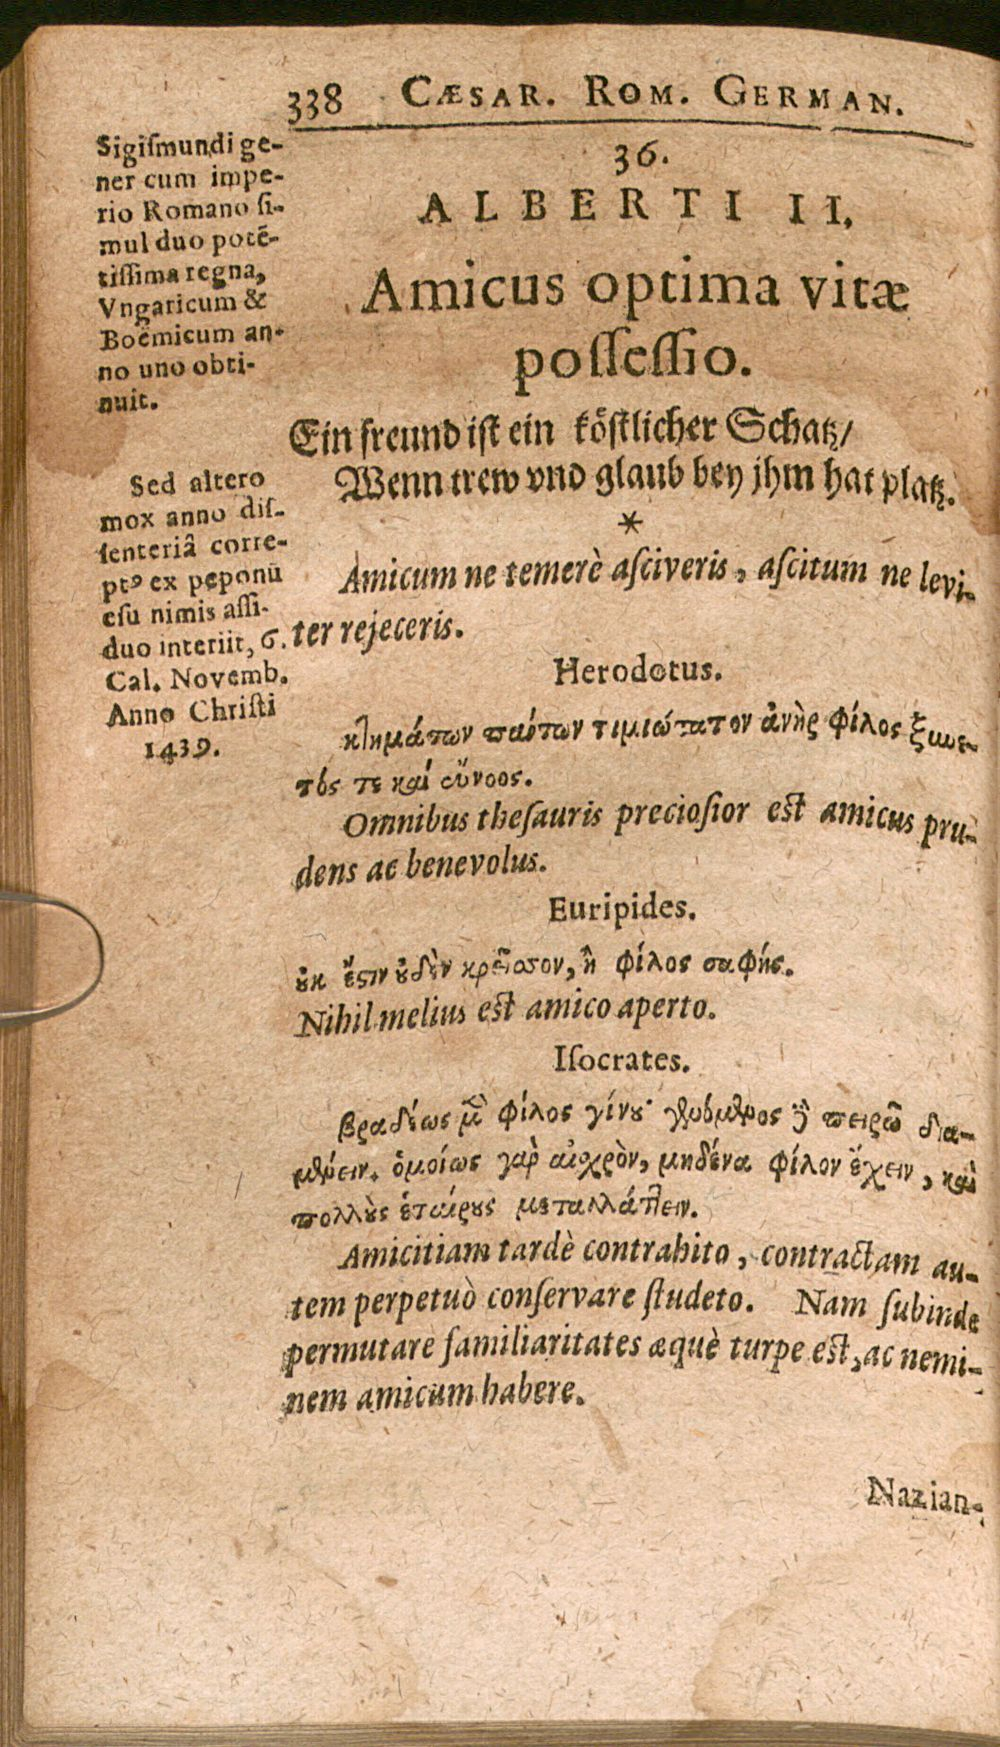 338 CÆSAR. ROM. GERMAN.
Sigiſmundi ge-
ner cum impe-
rio Romano ſi-
mul duo potē-
tiſſima regna,
Vngaricum &
Boëmicum an-
no uno obti-
nuit.
Sed altero
mox anno diſ-
ſenteriâ corre-
ptꝰ ex peponū
eſu nimis aſſi-
duo interiit, 6.
Cal. Novemb.
Anno Chriſti
1439.
36.
ALBERTI II.
Amicus optima vitæ
poſſeſſio.
Ein freund iſt ein köſtlicher Schatz/
Wenn trew vnd glaub bey jhm hat platz.
*
Amicum ne temerè aſciveris, aſcitum ne levi-
ter rejeceris.
Herodotus.
κτημάτων πάντων τιμιώτατον ἀνὴρ φίλος ξυνε-
τός τε καί εὔνοος.
Omnibus theſauris precioſior est amicus pru-
dens ac benevolus.
Euripides.
ȣ̓κ ἔϛιν ȣ̓δὲν κρεῖσσον, ἢ φίλος σαφής.
Nihil melius est amico aperto.
Iſocrates.
βραδέως μὲν φίλος γίνȣ· γενόμενος δὲ πειρῶ δια-
μένειν. ὁμοίως γὰρ αἰσχρὸν, μηδένα φίλον ἔχειν, καὶ
πολλȣ̀ς ἑταίρȣς μεταλλάττειν.
Amicitiam tardè contrahito, contractam au-
tem perpetuò conſervare ſtudeto. Nam ſubinde
permutare familiaritates æquè turpe est, ac nemi-
nem amicum habere.
Nazian-